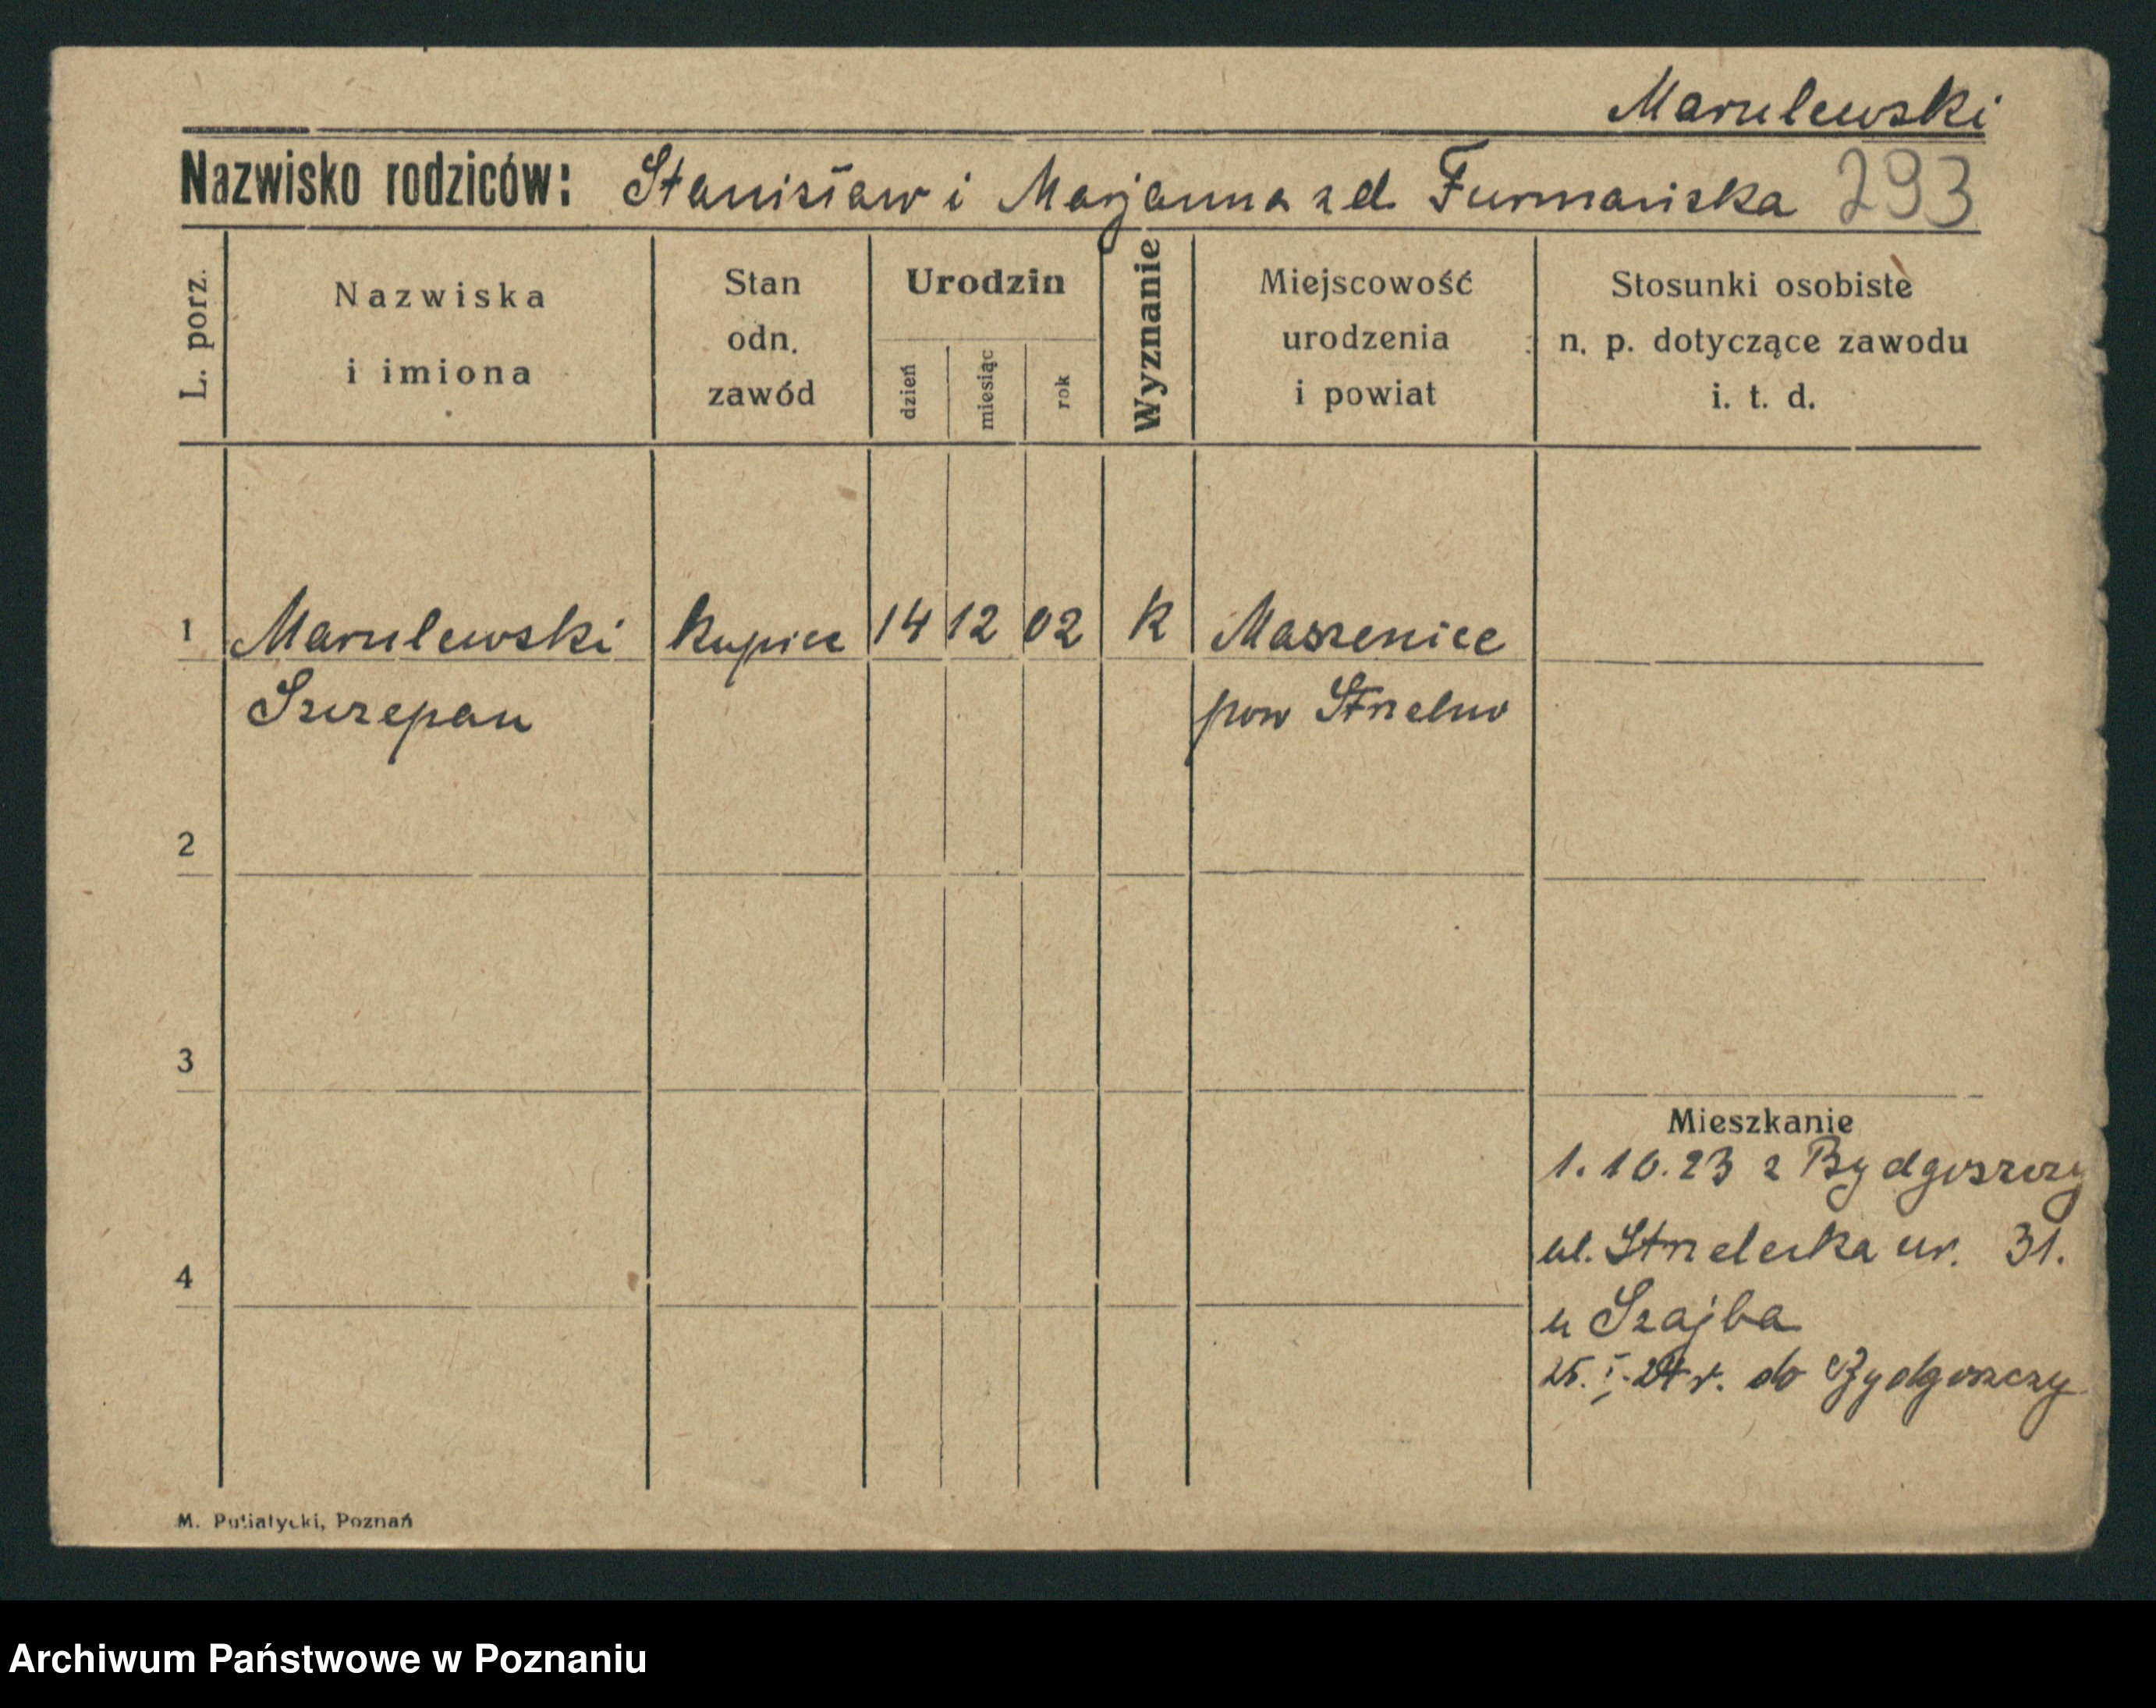 Marulewski
Nazwisko rodziców: Stanisław i Marjanna z d. Furmańska 293
L. porz.
Nazwiska
i imiona
Stan
odn.
zawód
Urodzin
dzień
miesiąc
rok
Wyznanie
Miejscowość
urodzenia
i powiat
Stosunki osobiste
n. p. dotyczące zawodu
i. t. d.
1 Marulewski kupiec 14 12 02 k Maszenice
Szczepan pow Strzelno
2
3
Mieszkanie
1. 10. 23 z Bydgoszczy
ul. Strzelecka nr. 31.
4
u Szajba
25. I. 24 r. do Bydgoszczy
M. Putiatycki, Poznań
Archiwum Państwowe w Poznaniu